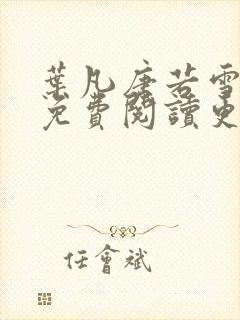 葉凡唐若雪
免費閱讀更
任會斌